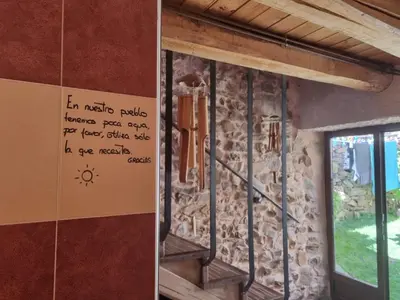 En nuestro pueblo
tenemos poca agua,
por favor, utiliza sólo
la que necesites.
GRACIAS